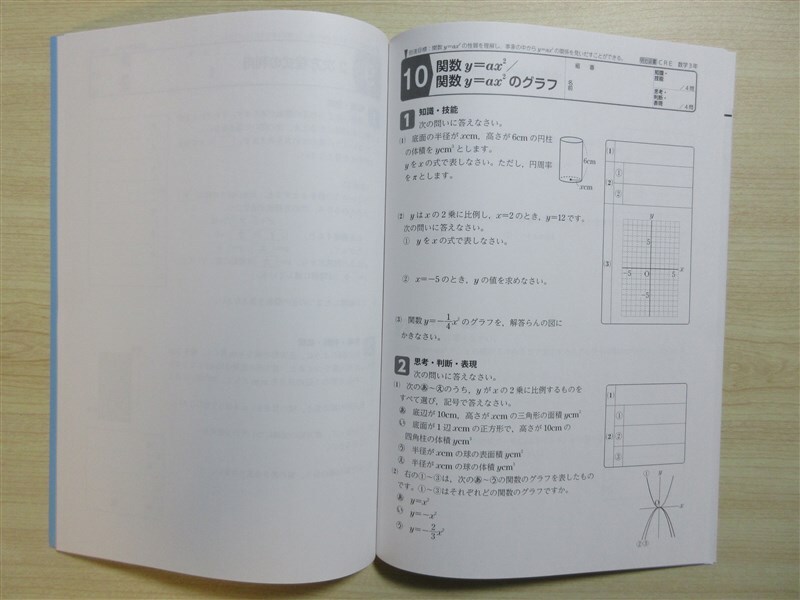 到達目標：関数 y=ax²の性質を理解し、事象の中から y=ax²の関係を見いだすことができる。
CRE 数学3年
10 関数 y=ax²／
関数 y=ax² のグラフ
組
番
名前
知識・
技能
／4問
思考・
判断・
表現
／4問
1 知識・技能
次の問いに答えなさい。
(1) 底面の半径が xcm，高さが 6cm の円柱
の体積を ycm³ とします。
y を x の式で表しなさい。ただし，円周率
を π とします。
6cm
xcm
(2) y は x の 2 乗に比例し，x=2 のとき，y=12 です。
次の問いに答えなさい。
① y を x の式で表しなさい。
② x=−5 のとき，y の値を求めなさい。
(3) 関数 y=−1/4 x² のグラフを，解答らんの図に
かきなさい。
(1)
(2)
①
②
(3)
y
5
−5 O 5 x
−5
2 思考・判断・表現
次の問いに答えなさい。
(1) 次のあ〜えのうち，y が x の 2 乗に比例するものを
すべて選び，記号で答えなさい。
あ 底辺が 10cm，高さが xcm の三角形の面積 ycm²
い 底面が 1 辺 xcm の正方形で，高さが 10cm の
四角柱の体積 ycm³
う 半径が xcm の球の表面積 ycm²
え 半径が xcm の球の体積 ycm³
(2) 右の①〜③は，次のあ〜うの関数のグラフを表したもの
です。①〜③はそれぞれどの関数のグラフですか。
あ y=x²
い y=−x²
う y=−2/3 x²
(1)
(2)
①
②
③
① y
O x
②③